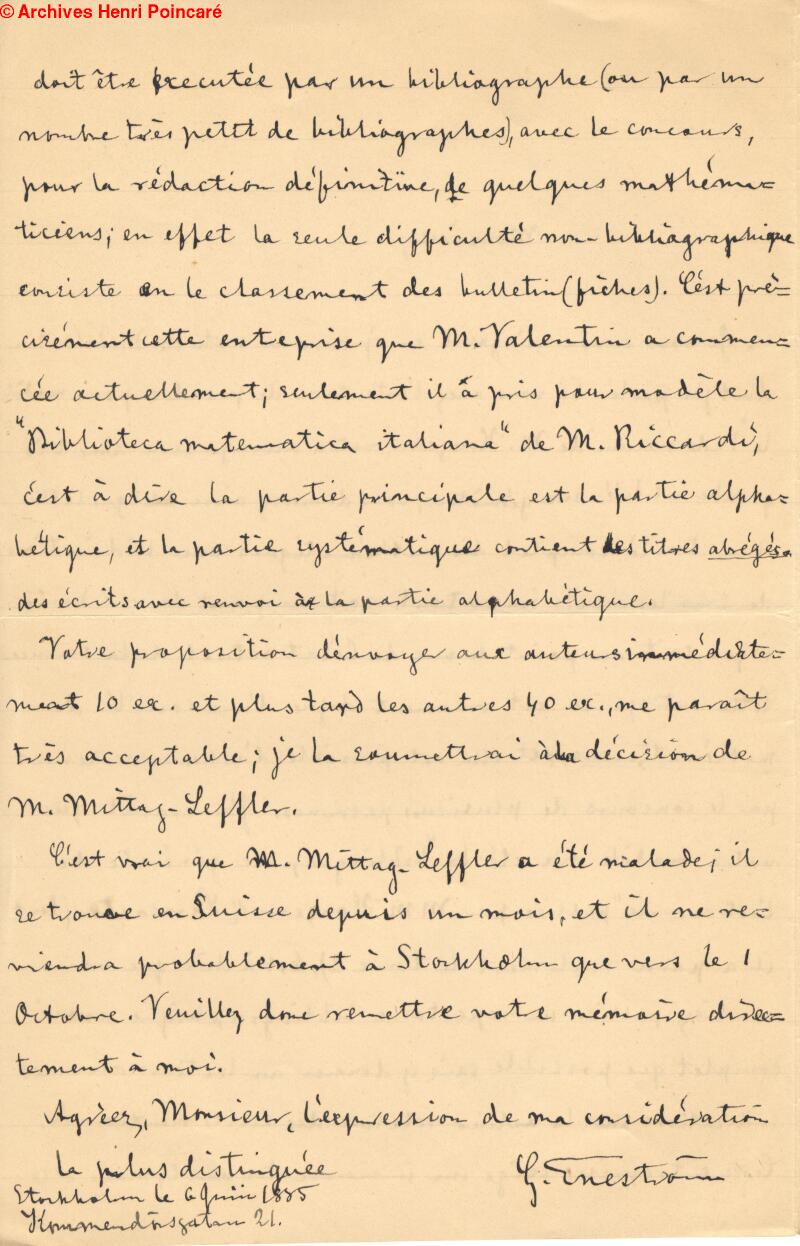 © Archives Henri Poincaré
doit être executée par un bibliographe (ou par un
nombre très petit de bibliographes), avec le concours,
pour la rédaction définitive, de quelques mathéma=
ticiens; en effet la seule difficulté non-bibliographique
consiste en le classement des bulletin (fiches). C'est pré=
cisément cette enteprise que M. Valentin a commen=
cée actuellement; seulement il a pris pour modèle la
"Biblioteca matematica italiana" de M. Riccardi,
c'est à dire la partie principale est la partie alpha=
bétique, et la partie systématique contient les titres abrégés
des écrits avec renvoi à la partie alphabétique.
Votre proposition d'envoyer aux auteurs immédiate=
ment 10 ex. et plus tard les autres 40 ex., me paraît
très acceptable; je la soumettrai à la décision de
M. Mittag-Leffler.
C'est vrai que M. Mittag-Leffler a été malade; il
se trouve en Suisse depuis un mois, et il ne re=
viendra probablement à Stockholm que vers le 1
Octobre. Veuillez donc remettre votre mémoire direc=
tement à moi.
Agréez, Monsieur, l'expression de ma considération
la plus distinguée
G. Eneström
Stockholm le 6 Juin 1885
Kommendörsgatan 21.